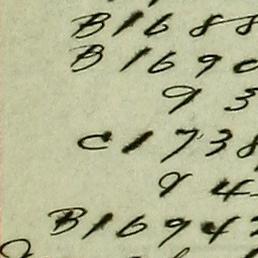 B 1 6 8 8
B 1 6 9 0
9 3
C 1 7 3 8
9 4
B 1 6 9 4 2